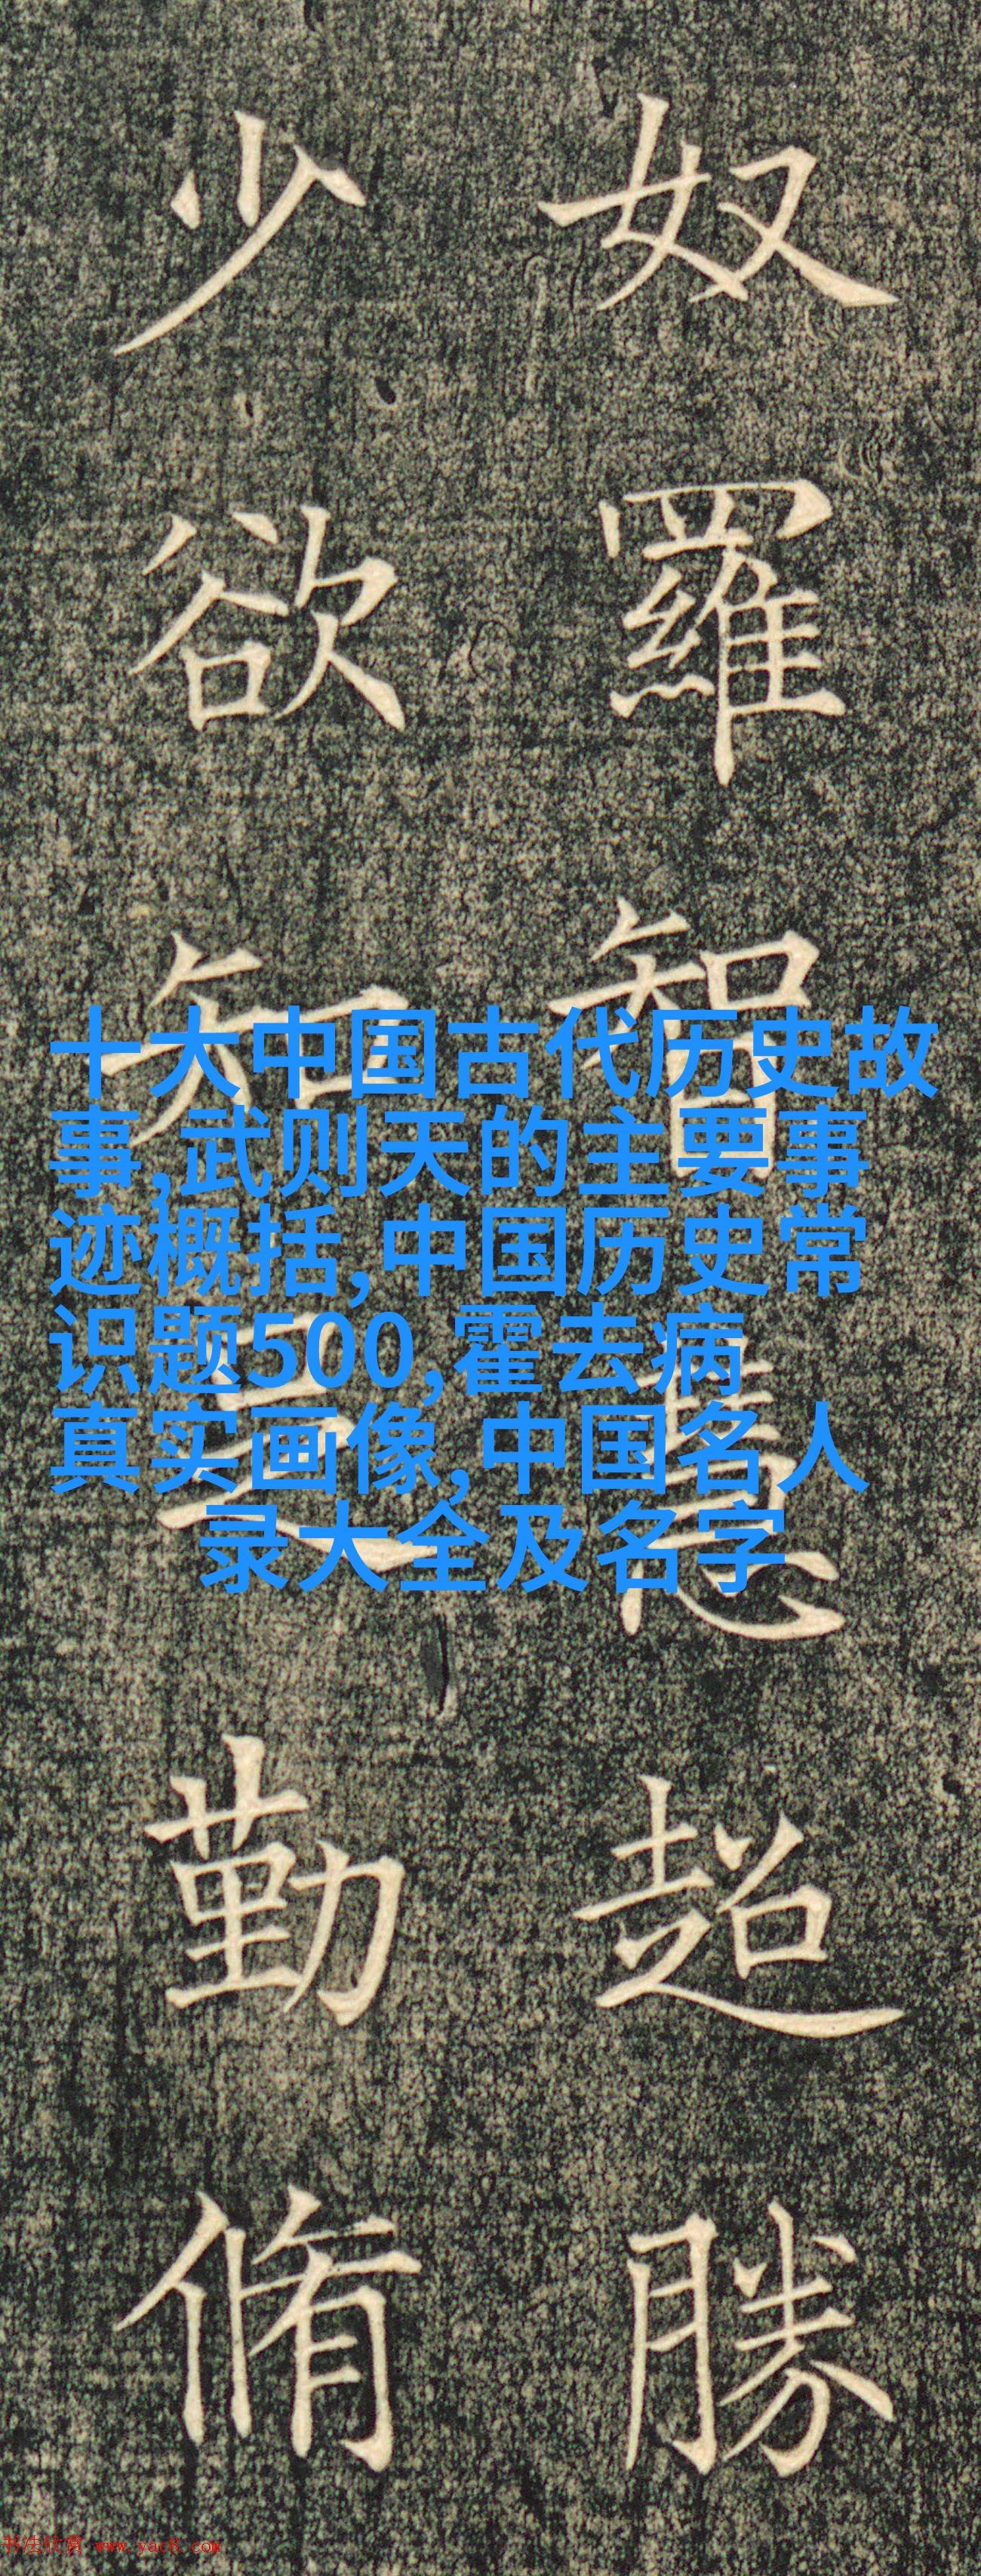 奴羅智超勝
少欲知勤脩
十大中国古代历史故
事,武则天的主要事
迹概括,中国历史常
识题500,霍去病
真实画像,中国名人
录大全及名字
书法欣赏 www.yac8.com